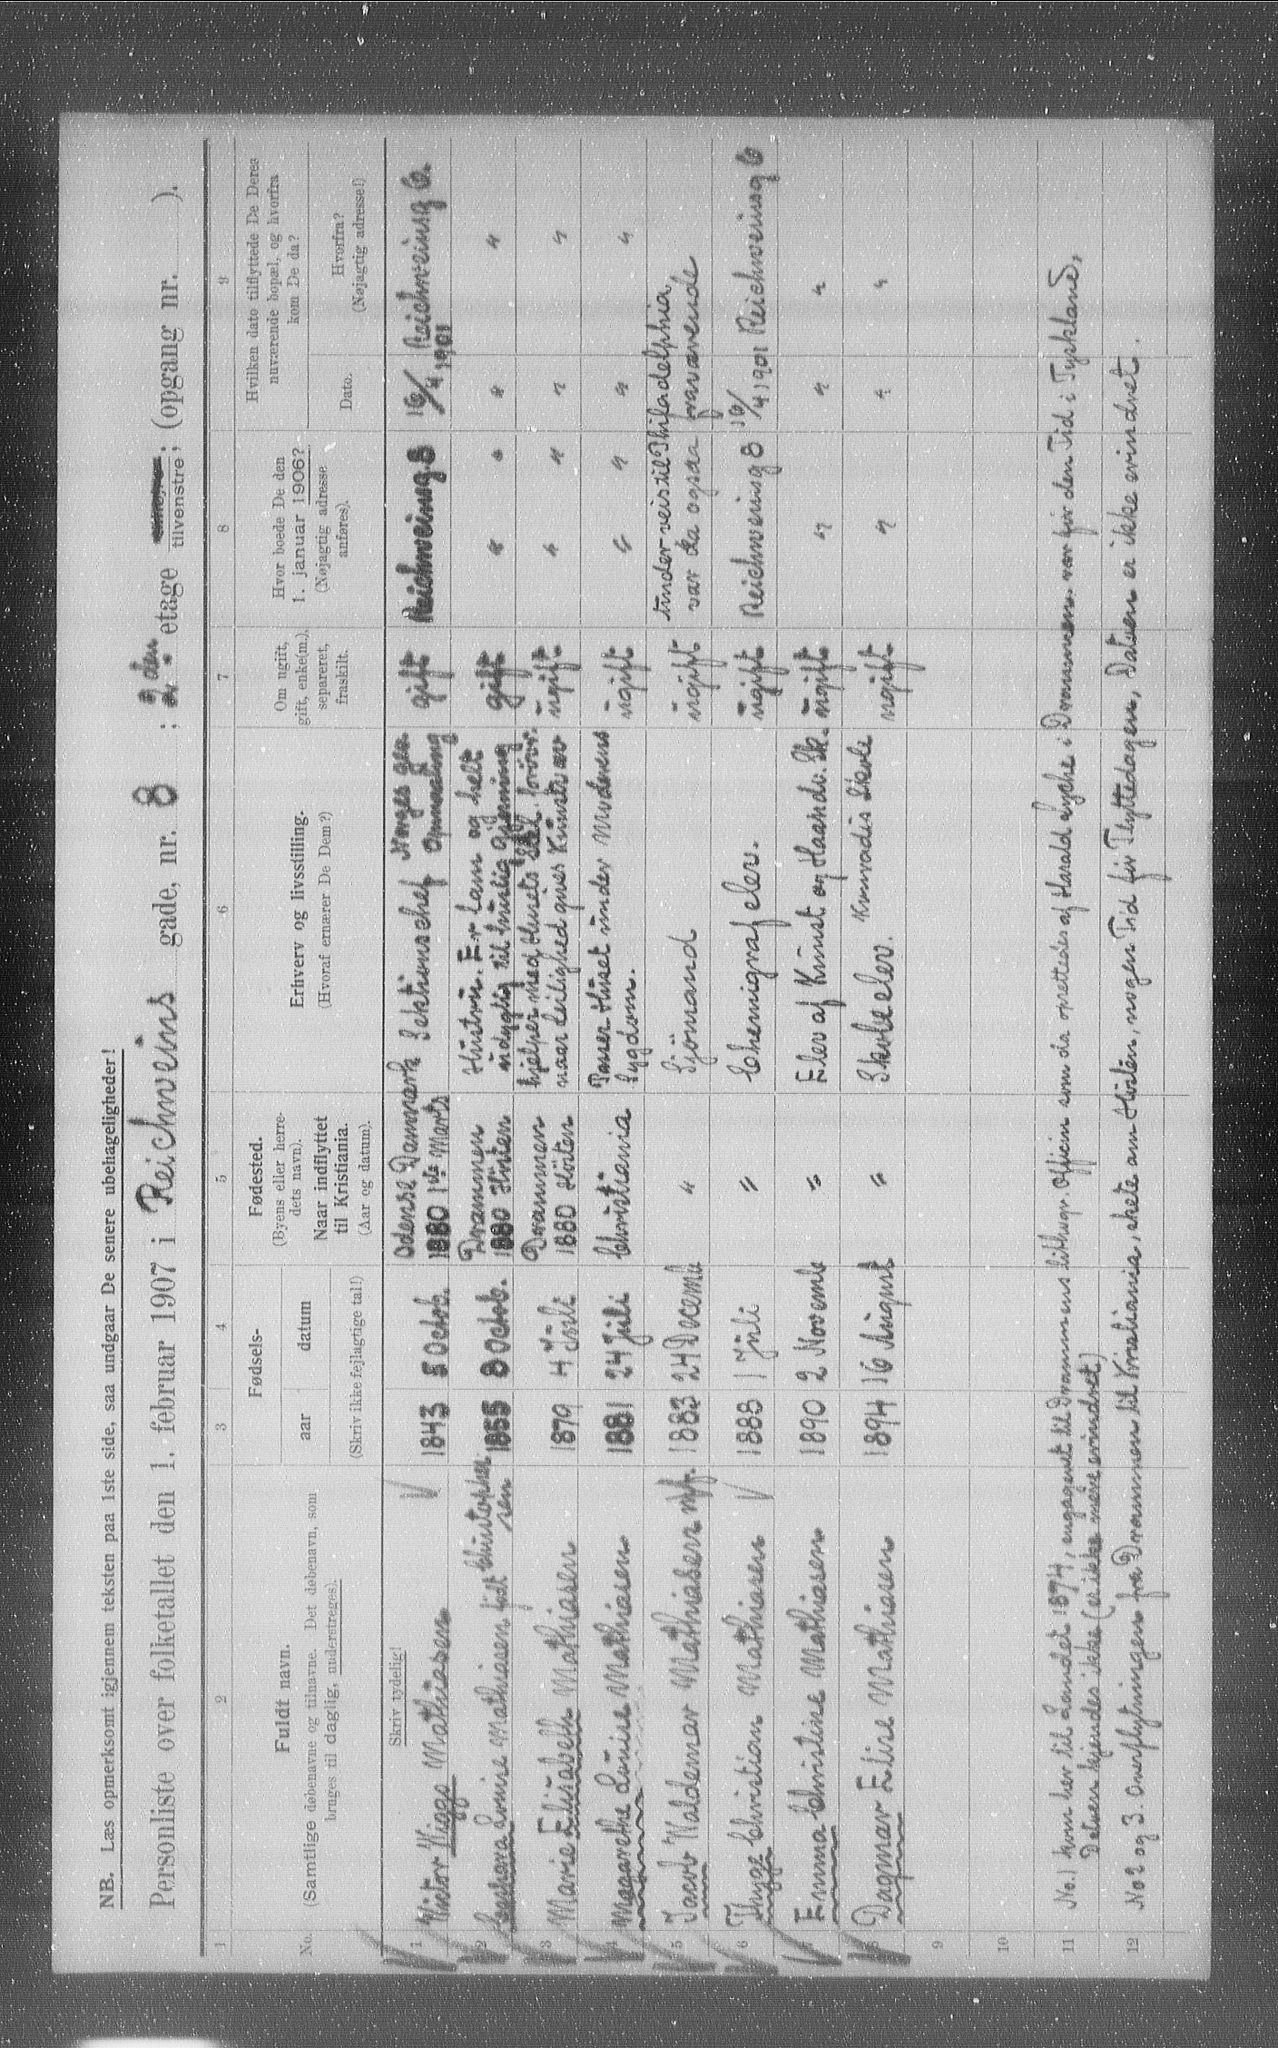 NB. Læs opmerksomt igjennem teksten paa 1ste side, saa undgaar De senere ubehageligheder!
Personliste over folketallet den 1. februar 1907 i Reichweins gade, nr. 8 ; 2den etage tilvenstre; (opgang nr. ).
1 2 3 4 5 6 7 8 9
No.
Fuldt navn.
(Samtlige døbenavne og tilnavne. Det døbenavn, som
bruges til daglig, understreges).
Fødsels-
aar
datum
(Skriv ikke fejlagtige tal!)
Fødested.
(Byens eller herre-
dets navn).
Naar indflyttet
til Kristiania.
(Aar og datum).
Erhverv og livsstilling.
(Hvoraf ernærer De Dem?)
Om ugift,
gift, enke(m.),
separeret,
fraskilt.
Hvor boede De den
1. januar 1906?
(Nøjagtig adresse
anføres).
Hvilken dato tilflyttede De Deres
nuværende bopæl, og hvorfra
kom De da?
Dato.
Hvorfra?
(Nøjagtig adresse!)
Skriv tydelig!
1 Victor Viggo Mathiasen 1843 5 Octob. Odense Danmark 1880 1ste Marts Sektionschef Norges geo. Opmaaling gift Reichweinsg 8 16/4 1901 Reichweinsg 6.
2 Louise Mathiasen født Christophersen 1855 8 Octob. Drammen 1880 Hösten Hustru. Er lam og helt udygtig til huslig gjerning gift " " "
3 Marie Elisabeth Mathiasen 1879 4 Juli Drammen 1880 Hösten hjelper med Husets Stel. naar leilighed gives Kunstv ugift " " "
4 Magarethe Luise Mathiasen 1881 24 Juli Christiania Passer Huset under Moderens Sygdom. ugift " " "
5 Jacob Valdemar Mathiasen mf. 1883 24 Decemb " Sjömand ugift underveis til Philadelphia, var da ogsaa fraværende
6 Thygge Christian Mathiasen 1888 1 Juli " Chemigraf elev. ugift Reichweinsg 8 16/4 1901 Reichweinsg 6
7 Emma Christine Mathiasen 1890 2 Novemb " Elev af Kunst og Haandv. Sk. ugift " " "
8 Dagmar Elise Mathiasen 1894 16 August " Skoleelev. Skole ugift " " "
9
10
11 No. 1 kom her til Landet 1874, engageret til Drammens lithogr. Officin som da oprettedes af Harald Lyche i Drammen. var för den Tid i Tyskland,
Datoen kjendes ikke (er ikke mere erindret)
12 No 2 og 3. Overflytningen fra Drammen til Kristiania, skete om Hösten, nogen Tid för Flyttedagen, Datoen er ikke erindret.